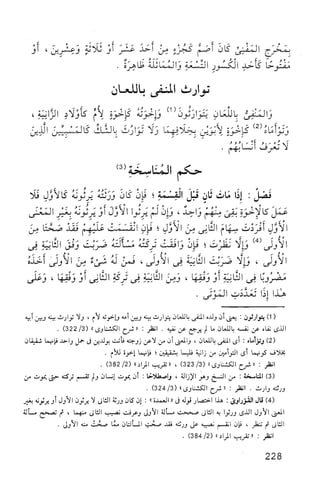 بِمَخْرَجِ المُفْنِيْ كَانَ أَصَمَّ كَجُزْءٍ مِنْ أَحَدَ عَشَرَ أَوْ ثَلَاثَةٍ وَعِشْرِينَ ، أَوْ
مَفْتُوحًا كَأَحَدِ الْكُسُورِ التِّسْعَةِ وَالمُمَاثَلَةُ ظَاهِرَةٌ .
توارث المنفى باللعـان
وَالمَنْفِيُّ بِاللِّعَانِ يَتَوَارَثُونَ (1) وَإِخْوَتُهُ كَإِخْوَةٍ لِأُمٍّ كَأَوْلَادِ الزَّانِيَةِ ،
وَتَوْأَمَاهُ (2) كَإِخْوَةٍ لِأَبَوَيْنِ بِخِلَافِهِمَا وَلَا تَوَارُثَ بِالشَّكِّ كَالمَسْبِيِّينَ الَّذِينَ
لَا تُعْرَفُ أَنْسَابُهُمْ .
حكم المُنَاسِخَةِ (3)
فَصْلٌ : إِذَا مَاتَ ثَانٍ قَبْلَ الْقِسْمَةِ ؛ فَإِنْ كَانَ وَرَثَتُهُ يَرِثُونَهُ كَالأَوَّلِ فَلَا
عَمَلَ كَالإِخْوَةِ بَقِيَ مِنْهُمْ وَاحِدٌ ، وَإِنْ لَمْ يَرِثُوا الأَوَّلَ أَوْ يَرِثُونَهُ بِغَيْرِ المَعْنَى
الأَوَّلِ أَفْرَدْتَ سِهَامَ الثَّانِي مِنَ الأَوَّلِ ؛ فَإِنِ انْقَسَمَتْ عَلَيْهِمْ فَقَدْ صَحَّتَا مِنَ
الأُولَى (4) وَإِلَّا نَظَرْتَ ؛ فَإِنْ وَافَقَتْ تَرِكَتُهُ مَسْأَلَتَهُ ضَرَبْتَ وَفْقَ الثَّانِيَةِ فِي
الأُولَى ، وَإِلَّا ضَرَبْتَ الثَّانِيَةَ فِي الأُولَى ، فَمَنْ لَهُ شَيْءٌ مِنَ الأُولَى أَخَذَهُ
مَضْرُوبًا فِي الثَّانِيَةِ أَوْ وَفْقِهَا ، وَمِنَ الثَّانِيَةِ فِي تَرِكَةِ الثَّانِي أَوْ وَفْقِهَا ، وَعَلَى
هذَا إِذَا تَعَدَّدَتِ المَوْتَى .
(1) يتوارثون : يعني أن ولده المنفى باللعان يتوارث بينه وبين أمه وإخوته لأم ، ولا توارث بينه وبين أبيه
الذي نفاه عن نفسه باللعان ما لم يرجع عن نفيه . انظر : « شرح الكشناوى » (3/ 322) .
(2) وتؤأماه : أى المنفى باللعان ، والمعنى أن من لاعن زوجته فأتت بولدين فى حمل واحد فإنهما شقيقان
بخلاف كونهما أى التوأمين من زانية فليسا بشقيقين ؛ فإنهما إخوة للأم .
انظر : « شرح الكشناوى » (3/ 323) ، « تقريب المراد » (2/ 382) .
(3) المناسخة : من النسخ وهو الإزالة ، واصطلاحًا : أن يموت إنسان ولم تقسم تركته حتى يموت من
ورثته وارث . انظر : « شرح الكشناوى » (3/ 324) .
(4) قال الفـزراوى : هذا اختصار قوله فى « العمدة » : إن كان ورثة الثانى لا يرثون الأول أو يرثونه بغير
المعنى الأول الذى ورثوا به الثانى صححت مسألة الأول وعرفت نصيب الثانى منهما ، ثم تصحح مسألة
الثانى ثم تنظر ، فإن انقسم نصيبه على ورثته فقد صحَّت المسألتان ممَّا صحَّت منه الأولى .
انظر : « تقريب المراد » (2/ 384) .
228